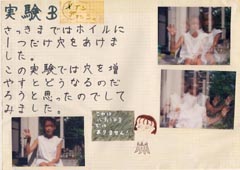 実験3
さっきまではホイルに
1つだけ穴をあけま
した。
この実験では穴を増
やすとどうなるのだ
ろうと思ったのでして
みました。